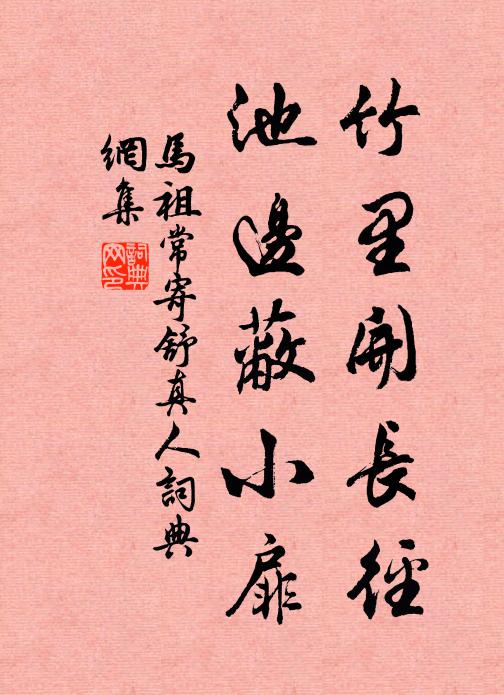 竹里開長徑
池邊蔽小扉
馬祖常寄舒真人詞典
網集
詞典網印